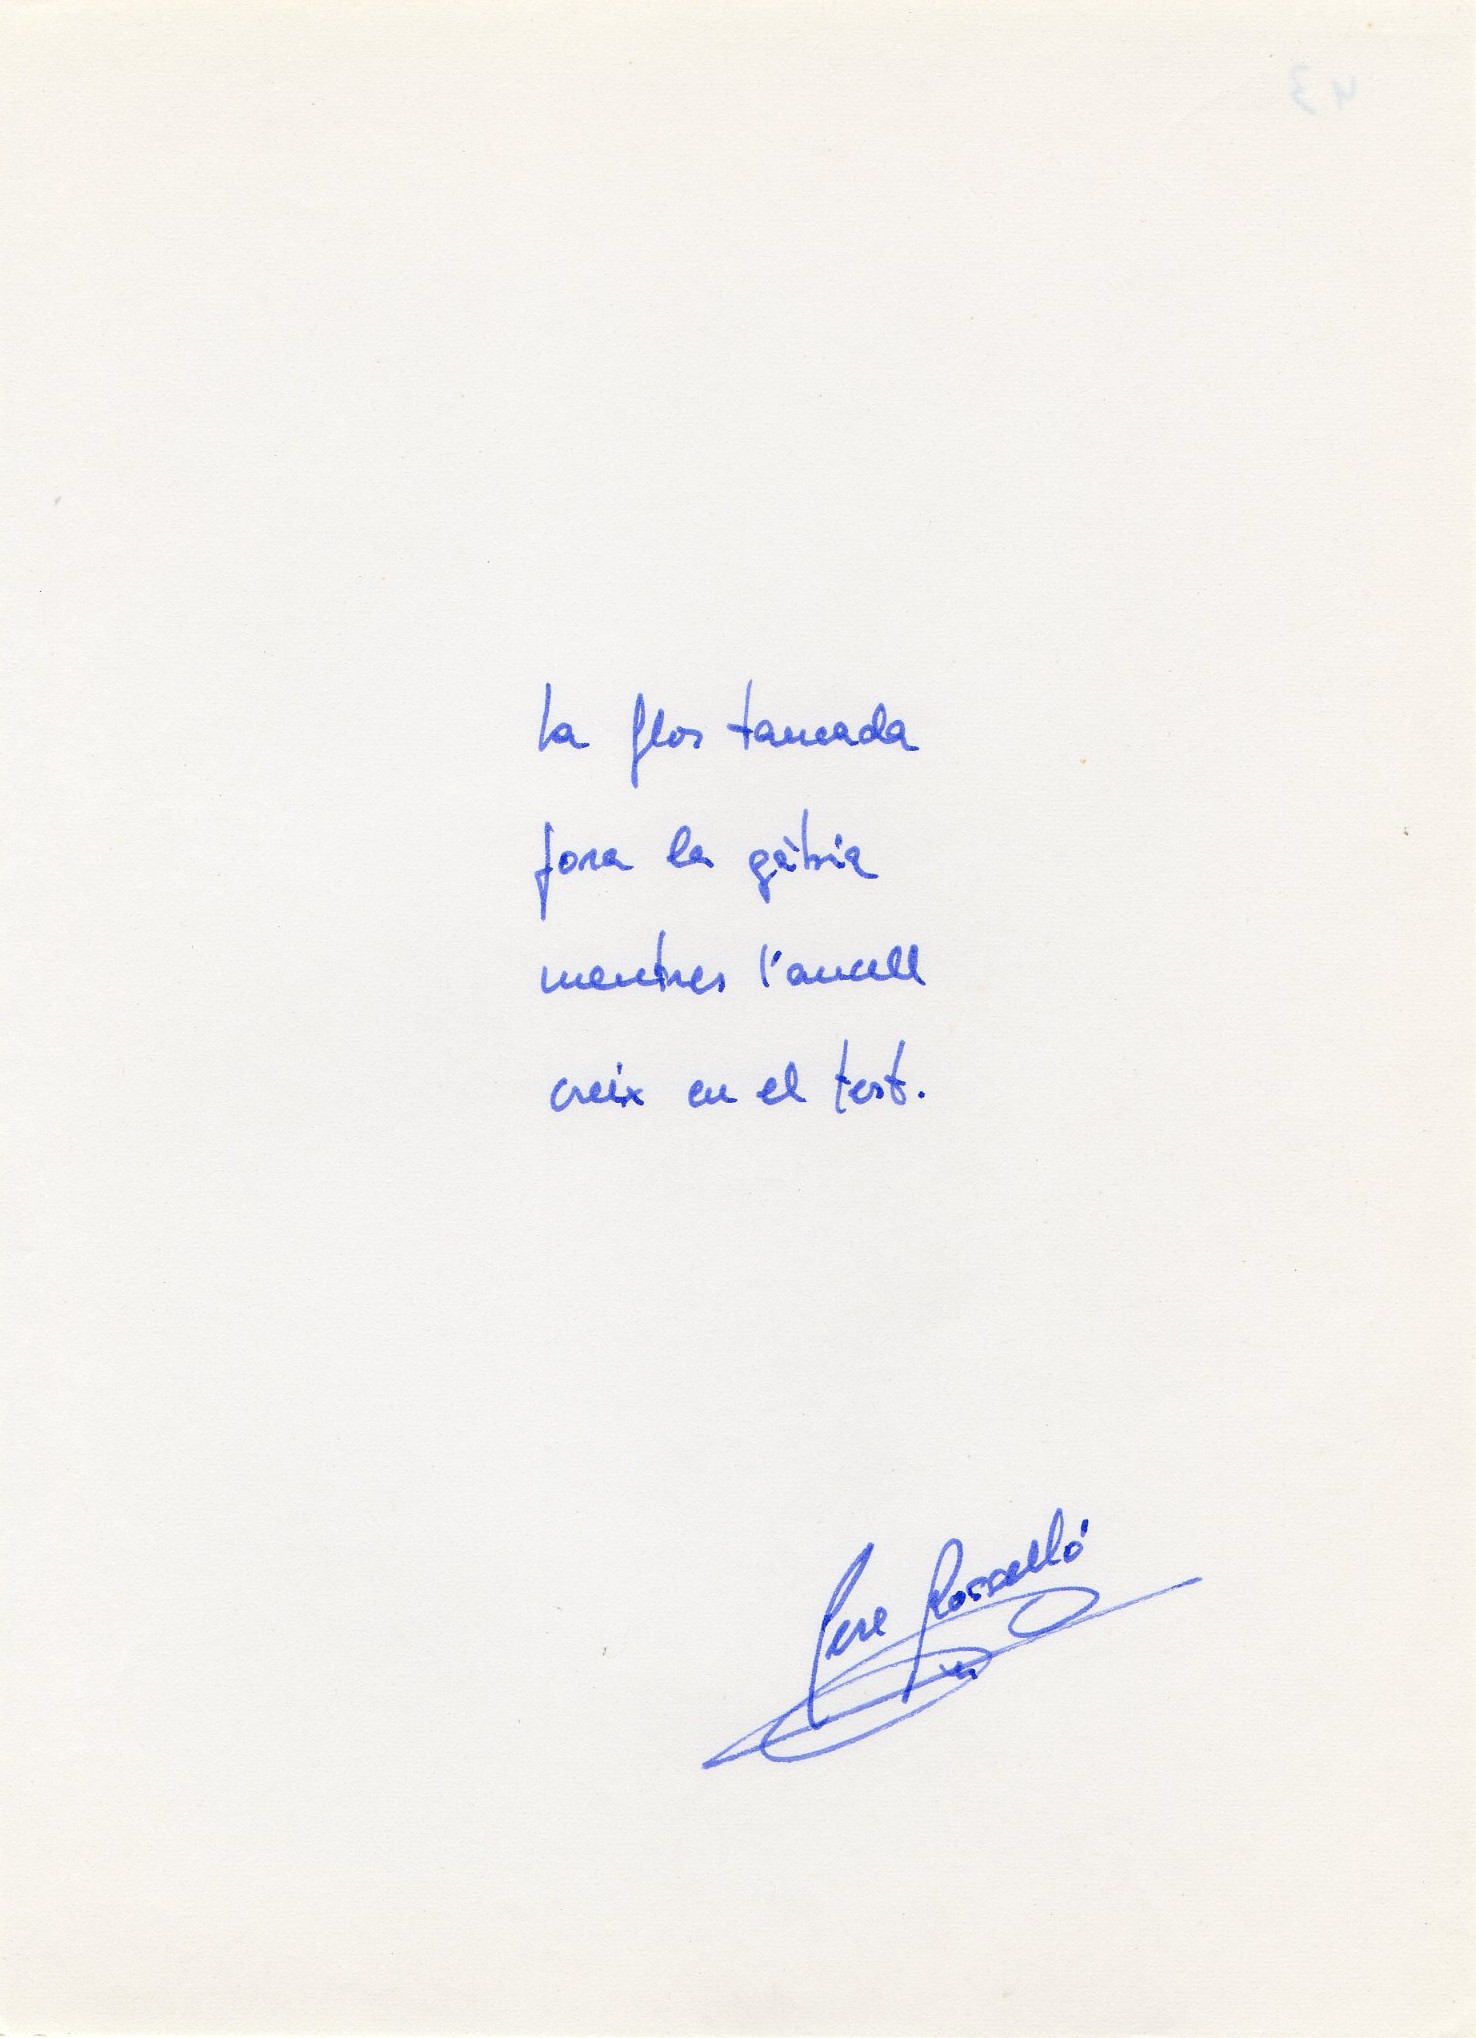 La flor tancada
fora la gàbia
mentres l'aucell
creix en el test.
Pere Rosselló